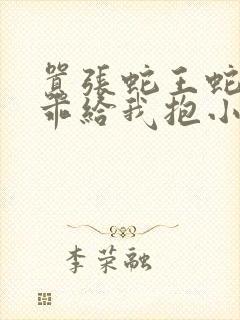 囂張蛇王蛇
乖給我抱小
李荣融